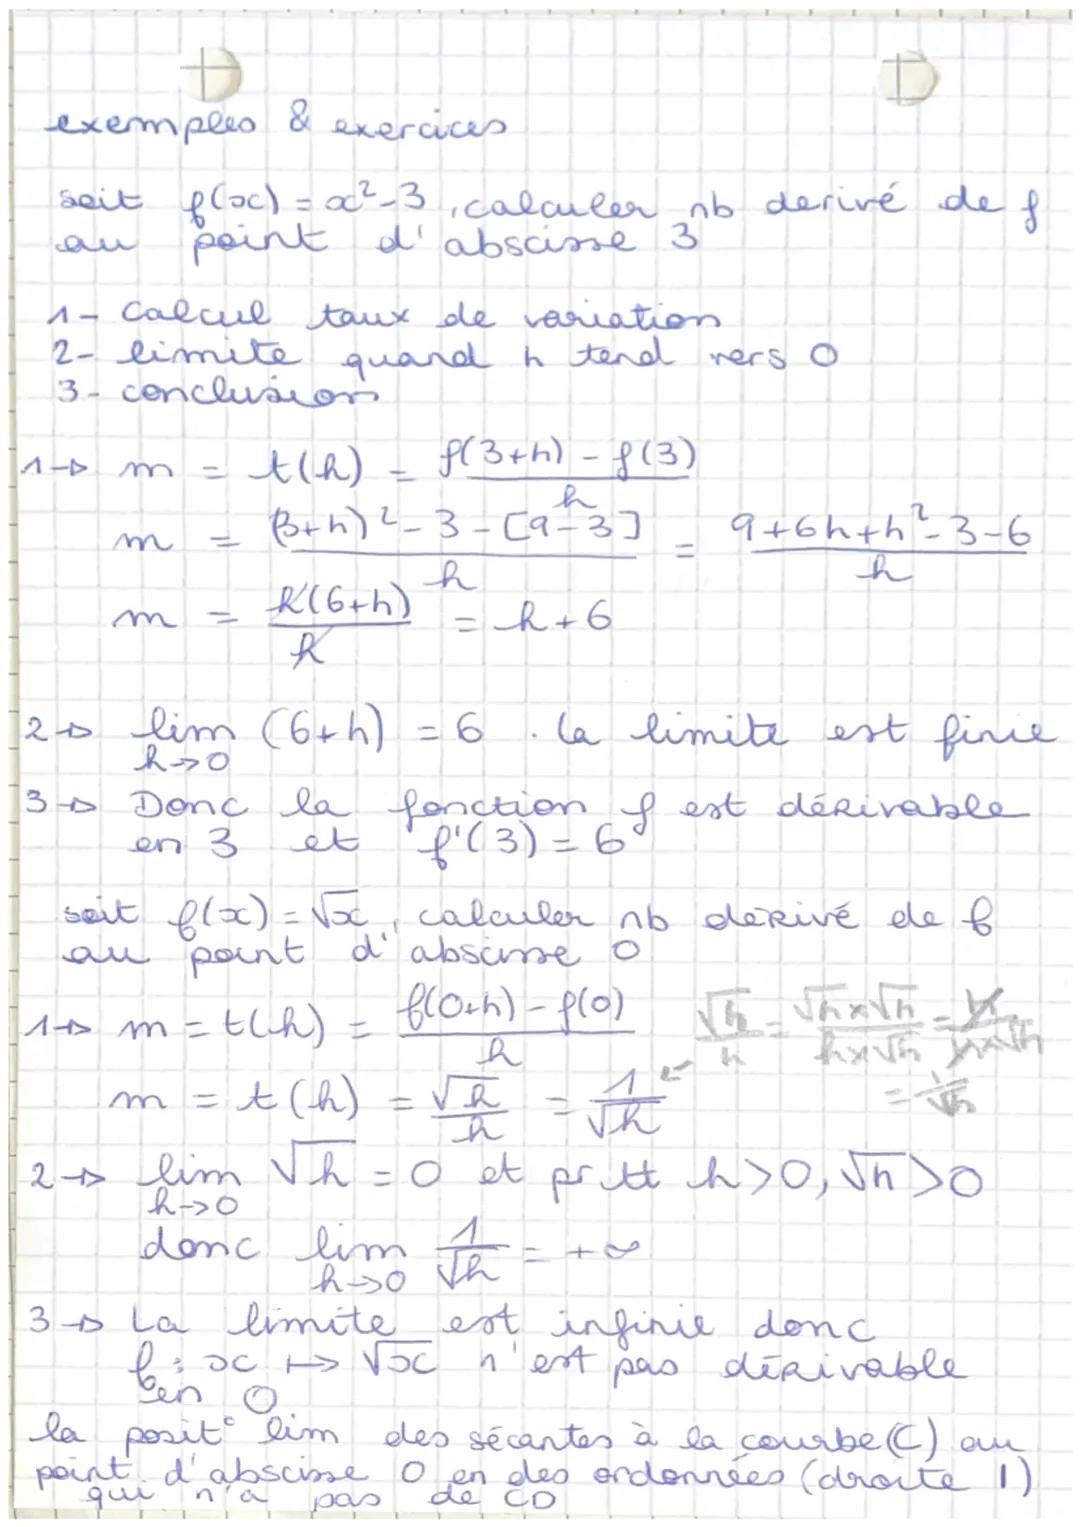 exemples & exercices
soit f(x) = x²-3, calculer nb derivé de f
au point d'abscisse 3
1- Calcul taux de variation
2- limite quand h tend vers 0
3- conclusion
1→ m = t(h) = f(3+h) - f(3) / h
m = (3+h)² - 3 - [9-3] / h = 9+6h+h²-3-6 / h
m = h(6+h) / h = h+6
2→ lim (6+h) = 6 . la limite est finie
h→0
3→ Donc la fonction f est dérivable
en 3 et f'(3) = 6
soit f(x) = √x, calculer nb dérivé de f
au point d'abscisse 0
1→ m = t(h) = f(0+h) - f(0) / h
√h / h = √h×√h / h×√h = h / h×√h
= 1/√h
m = t(h) = √h / h = 1 / √h ←
2→ lim √h = 0 et pr tt h>0, √h >0
h→0
donc lim 1/√h = +∞
h→0
3→ La limite est infinie donc
f : x ↦ √x n'est pas dérivable
en 0
la posit° lim des sécantes à la courbe (C) au
point d'abscisse 0 en des ordonnées (droite 1)
qui n'a pas de CD